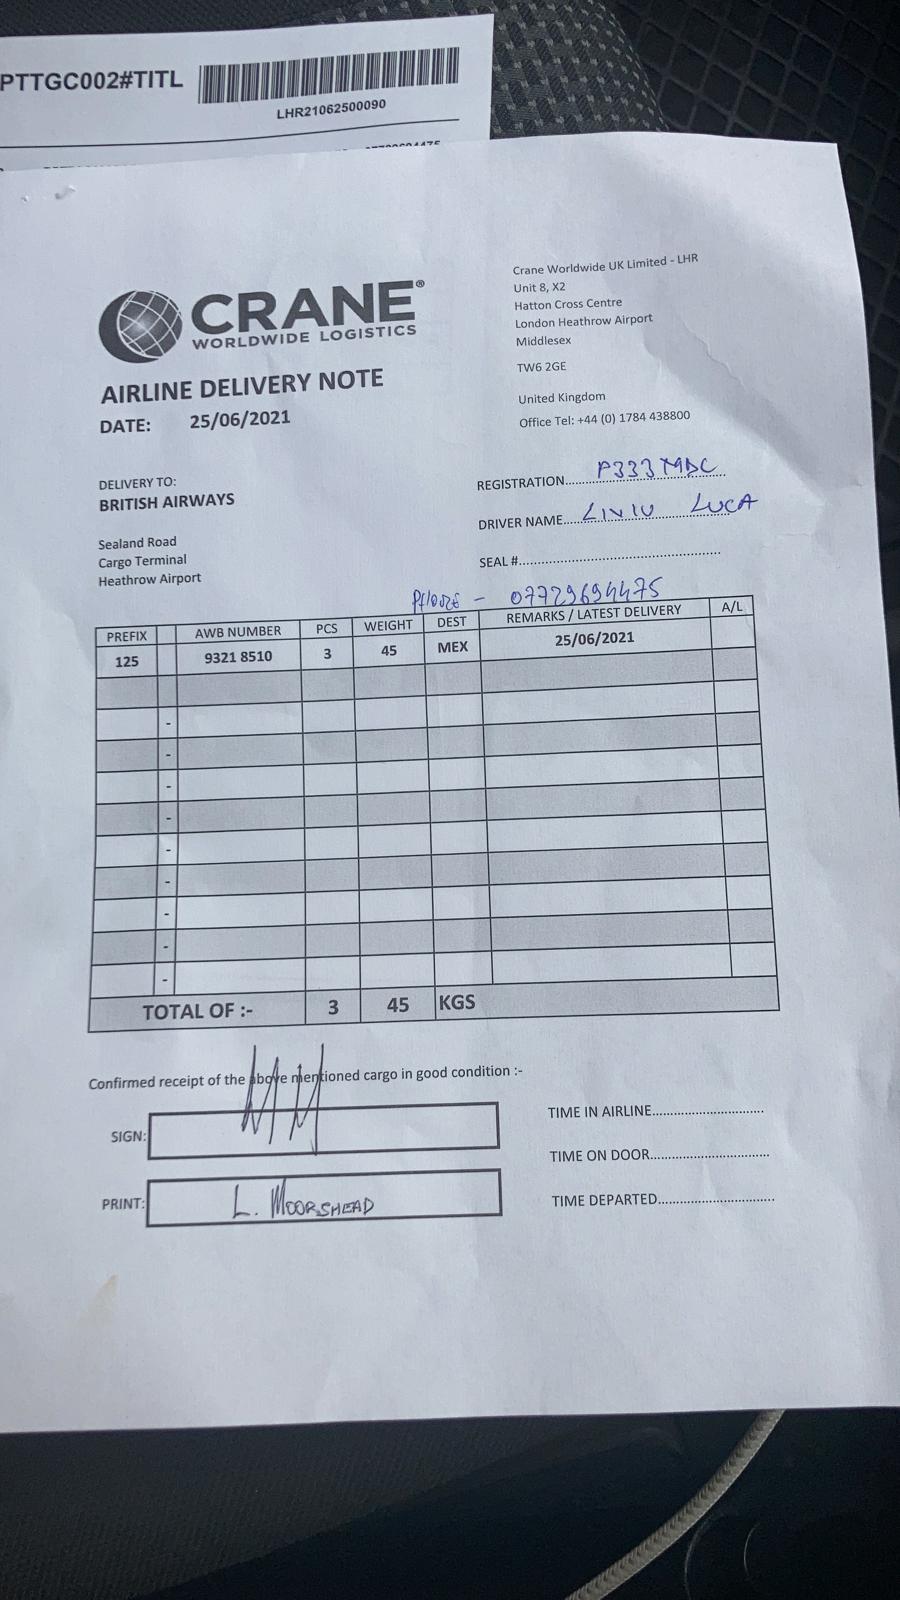 PTTGC002#TITL
LHR21062500090
CRANE®
WORLDWIDE LOGISTICS
AIRLINE DELIVERY NOTE
DATE: 25/06/2021
Crane Worldwide UK Limited - LHR
Unit 8, X2
Hatton Cross Centre
London Heathrow Airport
Middlesex
TW6 2GE
United Kingdom
Office Tel: +44 (0) 1784 438800
DELIVERY TO:
BRITISH AIRWAYS
Sealand Road
Cargo Terminal
Heathrow Airport
REGISTRATION P333 MDC
DRIVER NAME LIVIU LUCA
SEAL #
- 07729694475
PREFIX AWB NUMBER PCS WEIGHT DEST REMARKS / LATEST DELIVERY A/L
125 9321 8510 3 45 MEX 25/06/2021
-
-
-
-
-
-
-
-
-
TOTAL OF :- 3 45 KGS
Confirmed receipt of the above mentioned cargo in good condition :-
SIGN:
PRINT: L. MOORSHEAD
TIME IN AIRLINE
TIME ON DOOR
TIME DEPARTED